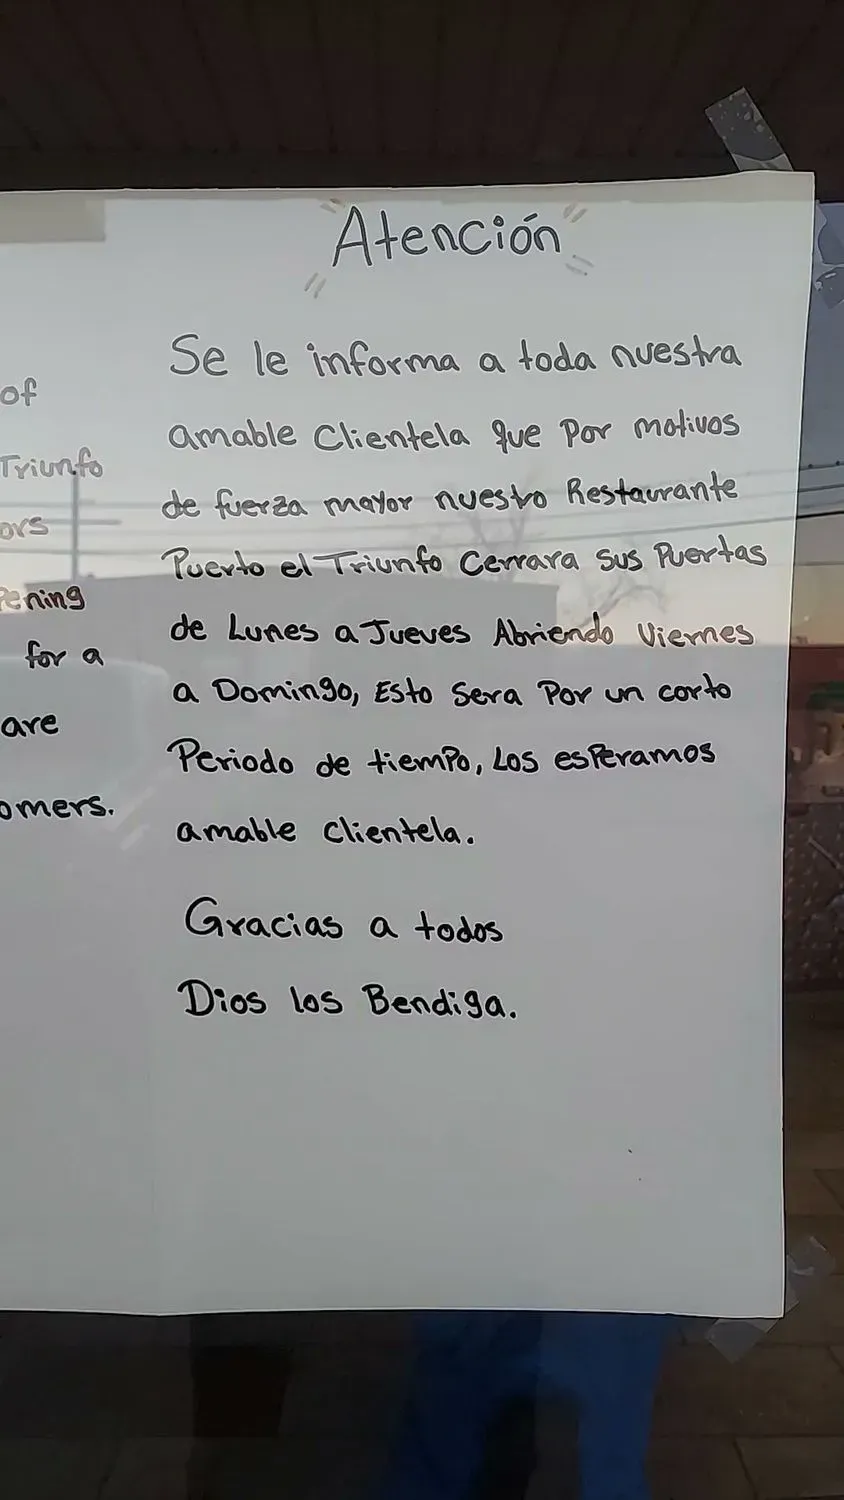 Atención
Se le informa a toda nuestra
amable Clientela que Por motivos
de fuerza mayor nuestro Restaurante
Puerto el Triunfo Cerrara sus Puertas
de Lunes a Jueves Abriendo Viernes
a Domingo, Esto Sera Por un corto
Periodo de tiempo, Los esperamos
amable clientela.
Gracias a todos
Dios los Bendiga.
of
Triunfo
ors
pening
for a
are
omers.